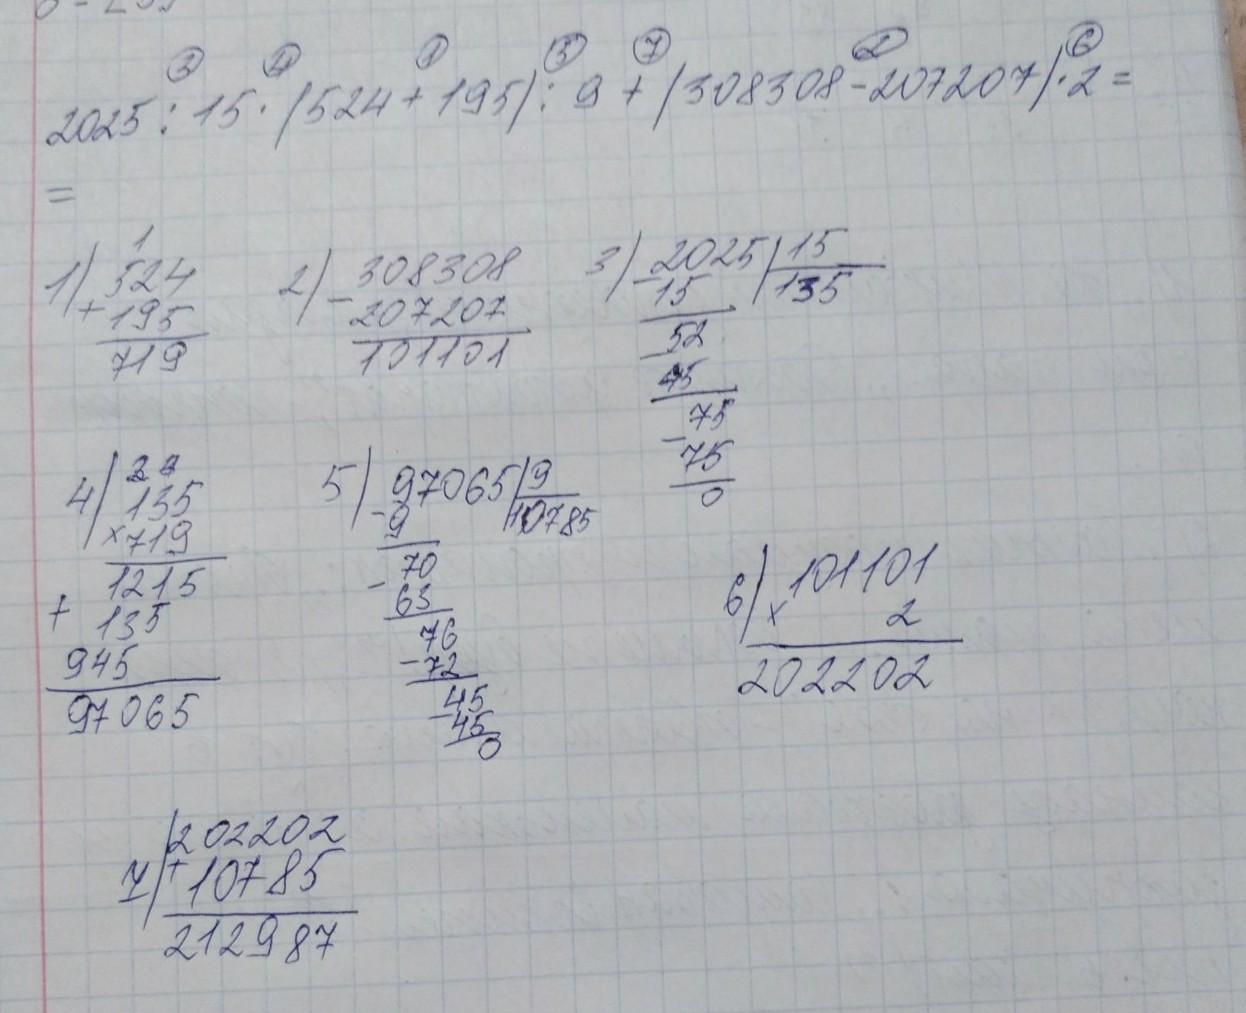 ③ ④ ① ⑤ ⑦ ② ⑥
2025 : 15 · (524 + 195) : 9 + (308308 - 207207) · 2 =
=
1) 1
524
+ 195
719
2) - 308308
207207
101101
3) - 2025 | 15
15 | 135
52
- 45
75
- 75
0
4) 2 4
135
× 719
1215
+ 135
945
97065
5) 97065 | 9
- 9 | 10785
70
- 63
76
- 72
45
- 45
0
6) 101101
× 2
202202
7) 202202
+ 10785
212987